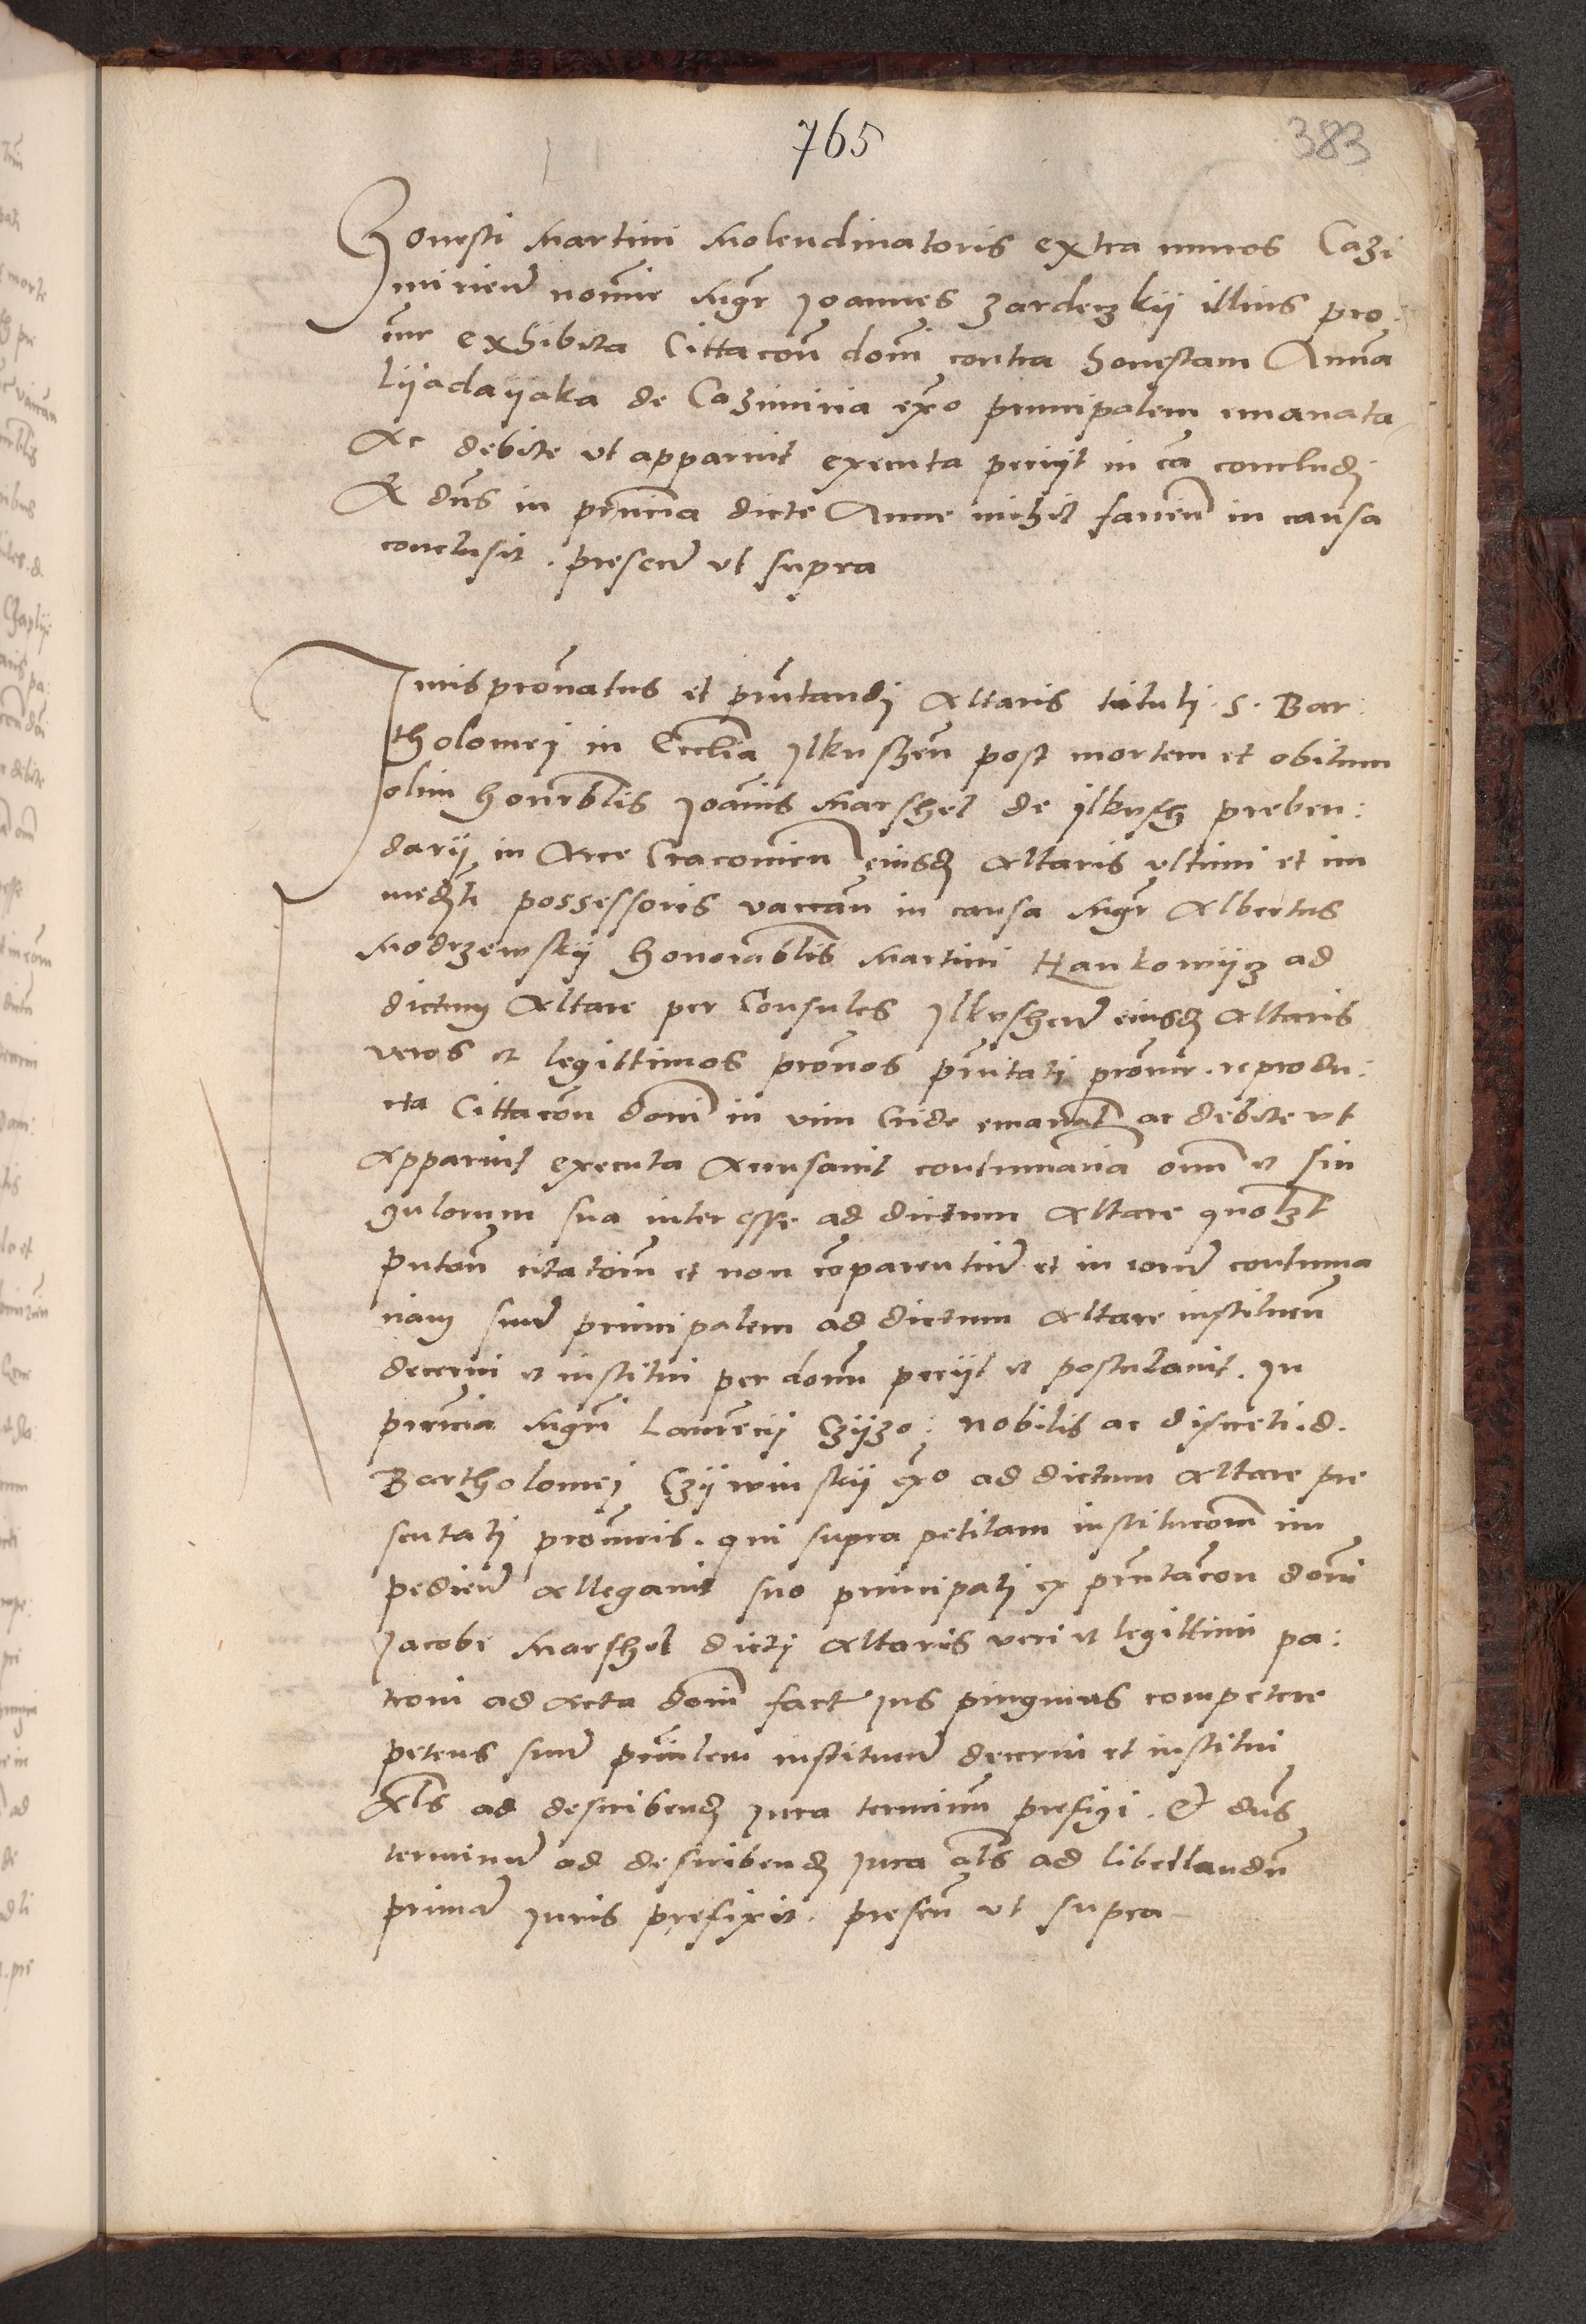 765
383
Honesti Martini Molendinatoris extra muros Cazi
mirien nomine Mgr Joannes Zardeczkÿ illius pro:
cur exhibita Cittacon domi contra honestam Annã
de Cazimiria exo principalem emanata
ac debite ut apparuit executa petiit in ca concludj
Et dns in pñcia dicte Anne nihil facien in causa
conclusit. presen ut supra
Juris pronatus et pñtandj Altaris titulj. S. Bar:
tholomej in Ecclia Jlkuschen post mortem et obitum
olim honrblis Joanis Marschel de Jlkusch preben:
darij in Arce Cracovien eiusd Altaris ultimi et im
mediti possessoris vacan in causa Mgr Albertus
Modrzewskÿ honorablis Martini Hankowÿcz ad
dictum Altare per Consules Jlkuschen eiusd Altaris
veros et legittimos pronos pñtati procur. reprodu:
cta Cittacon domi in vim Cride emanat ac debite ut
Apparuit executa Accusavit contumacia omn et sin
gulorum sua interesse ad dictum Altare quolzt
putan citatorum et non comparentium et in eorum contuma
ciam suum principalem ad dictum Altare instituen
decerni et institui per domu petiit et postulavit. In
pñcia Mgri Laurecij Czÿzo: nobilis ac discreti. d.
Bartholomej Czÿwinskÿ exo ad dictum Altare pre
sentatj procuris. qui supra petitam institucom im
pedien Allegavit suo principali ex pñtacon domi
Jacobi Marschel dicti Altaris veri et legittimi pa:
troni ad Acta domi fact ius pinguius competere
petens suum prinlem instituen decerni et institui
Als ad describend iura terminum prefigi. Et dns
terminum ad describend iura als ad libellandu
primam iuris prefixit. presen ut supra